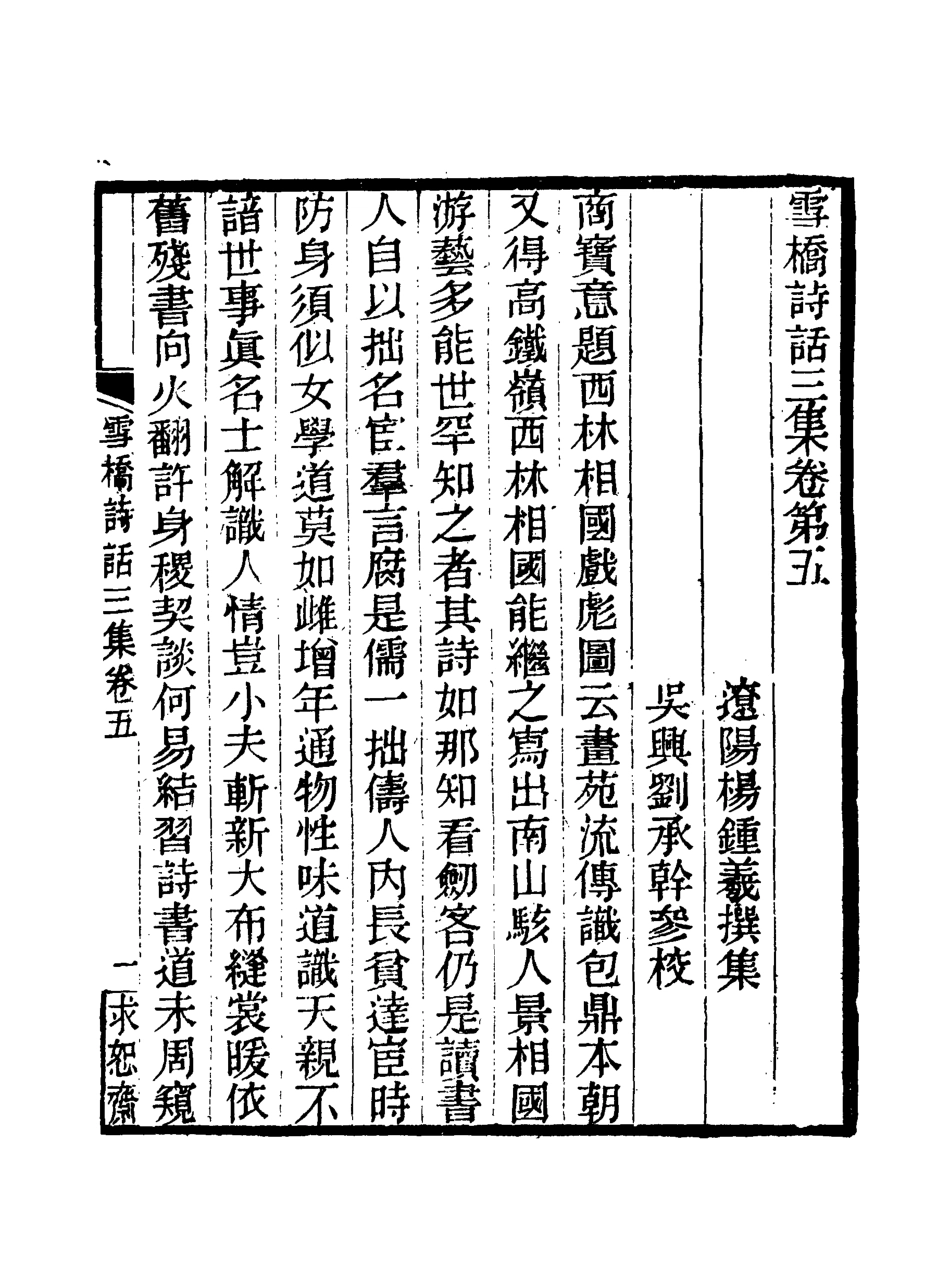 雪橋詩話三集卷第五
遼陽楊鍾羲撰集
吳興劉承幹參校
商寶意題西林相國戲彪圖云畫苑流傳識包鼎本朝
又得高鐵嶺西林相國能繼之寫出南山駭人景相國
游藝多能世罕知之者其詩如那知看劒客仍是讀書
人自以拙名官羣言腐是儒一拙儔人內長貧達宦時
防身須似女學道莫如雌增年通物性味道識天親不
諳世事眞名士解識人情豈小夫斬新大布縫裳暖依
舊殘書向火翻許身稷契談何易結習詩書道未周窺
雪橋詩話三集卷五
一
求恕齋